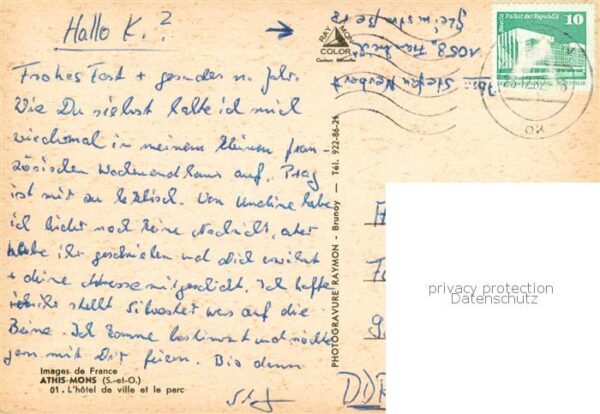 Hallo K.?
Frohes Fest + gesundes n. Jahr
Wie Du siehst halte ich mich
wiedermal in meinem kleinen fran-
zösischen Wochenendhaus auf. Prag
ist mir zu
Von Undine habe
ich leider noch keine Nachricht, aber
habe ihr geschrieben und Dich erwähnt
+ deine Adresse mitgeschickt. Ich hoffe
ihr stellt Silvester was auf die
Beine. Ich komme bestimmt und möchte
gern mit Dir feiern. Bis dann
Images de France
ATHIS-MONS (S.-et-O.)
01. L'hôtel de ville et le parc
PHOTOGRAVURE RAYMON - Brunoy - Tél. 922-86-2
RAY MON
COLOR
Couleurs Naturelles
1058 Berlin
Berlin Palast der Republik
10
DDR
DDR
privacy protection
Datenschutz